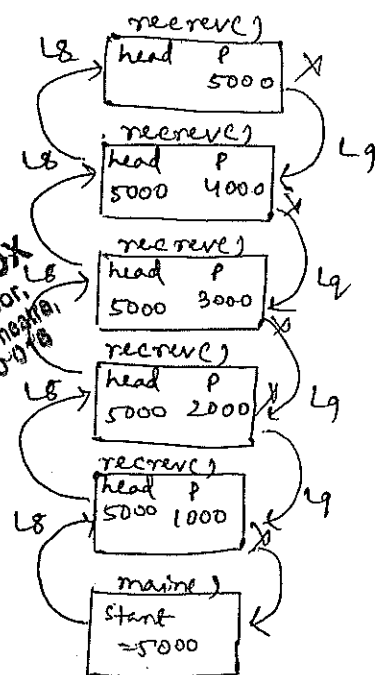 recrev()
L8
head P
5000
L9
recrev()
L8
head P
5000 4000
recrev()
L8
head P
L9
5000 3000
recrev()
L8
head P
L9
5000 2000
recrev()
head P
L9
L8
5000 1000
main()
start
=5000